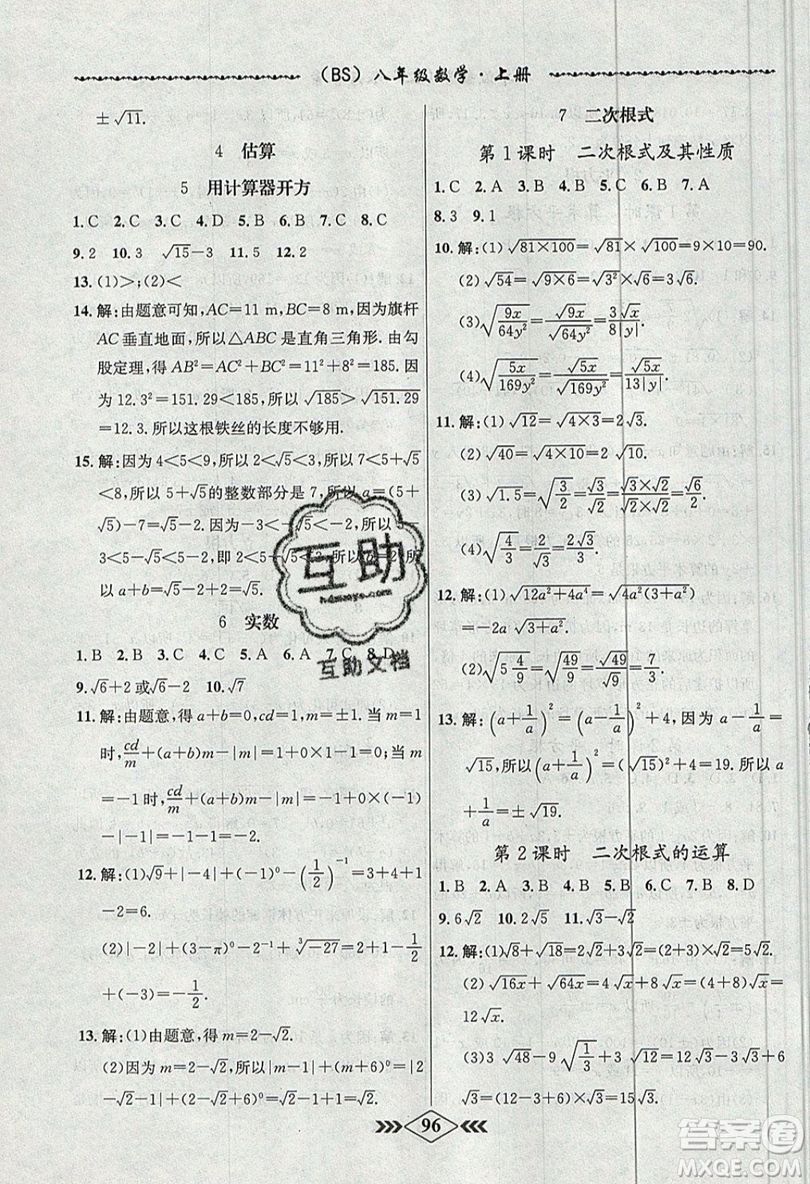 (BS)八年级数学·上册
±√11.
4 估算
5 用计算器开方
1.C 2.C 3.C 4.D 5.B 6.B 7.C 8.C
9.2 10.√15-3 11.5 12.2
13.(1)>;(2)<
14.解:由题意可知,AC=11 m,BC=8 m,因为旗杆
AC垂直地面,所以△ABC是直角三角形.由勾
股定理,得AB²=AC²+BC²=11²+8²=185.因
为12.3²=151.29<185,所以√185>√151.29
=12.3.所以这根铁丝的长度不够用.
15.解:因为4<5<9,所以2<√5<3.所以7<5+√5
<8,所以5+√5的整数部分是7,所以a=(5+
√5)-7=√5-2.因为-3<-√5<-2,所以5-
3<5-√5<5-2,即2<5-√5<3,所以b=2,所
以a+b=√5-2+2=√5.
6 实数
1.B 2.B 3.B 4.C 5.D 6.C 7.C 8.D
9.√6+2或√6-2 10.√7
11.解:由题意,得a+b=0,cd=1,m=±1.当m=1
时,cd/m+(a+b)m-|m|=1+0×1-1=0;当m
=-1时,cd/m+(a+b)m-|m|=-1+0×(-1)
-|-1|=-1-1=-2.
12.解:(1)√9+|-4|+(-1)⁰-(1/2)⁻¹=3+4+1
-2=6.
(2)-|-4|+(π-3)⁰-2⁻¹+∛-27=-4+1-
1/2-3=-6 1/2.
13.解:(1)由题意,得m=2-√2.
(2)因为m=2-√2,所以|m-1|+(m+6)⁰=
|2-√2-1|+(2-√2+6)⁰=√2-1+1=√2.
7 二次根式
第1课时 二次根式及其性质
1.C 2.A 3.A 4.C 5.B 6.B 7.A
8.3 9.1
10.解:(1)√81×100=√81×√100=9×10=90.
(2)√54=√9×6=√9×√6=3√6.
(3)√(9x/64y²)=√9x/√64y²=3√x/8|y|.
(4)√(5x/169y²)=√5x/√169y²=√5x/13|y|.
11.解:(1)√12=√4×3=2√3.
(2)√40=√4×10=√4×√10=2√10.
(3)√1.5=√(3/2)=√3/√2=√3×√2/√2×√2=√6/2.
(4)√(4/3)=√4/√3=2×√3/√3×√3=2√3/3.
12.解:(1)√12a²+4a⁴=√4a²(3+a²)
=-2a√3+a².
(2)√(5 4/9)=√(49/9)=√49/√9=7/3.
13.解:(a+1/a)²=(a-1/a)²+4,因为a-1/a=
√15,所以(a+1/a)²=(√15)²+4=19.所以a+
1/a=±√19.
第2课时 二次根式的运算
1.B 2.C 3.A 4.C 5.D 6.B 7.B 8.D
9.6√2 10.2√5 11.√3-√2
12.解:(1)√8+√18=2√2+3√2=(2+3)√2=5√2.
(2)√16x+√64x=4√x+8√x=(4+8)√x=
12√x.
(3)3√48-9√(1/3)+3√12=12√3-3√3+
6√3=(12-3+6)√3=15√3.
96
互助
互助文档
答案圈
MXQE.COM